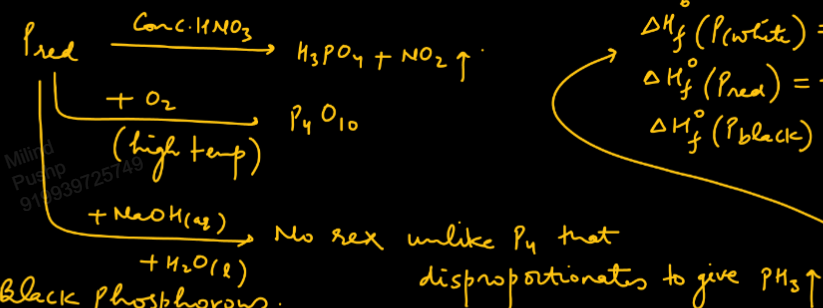 Pred Conc. HNO3 → H3PO4 + NO2 ↑
+ O2 P4O10
(high temp)
+ NaOH(aq) No rex unlike P4 that
+ H2O(l) disproportionates to give PH3 ↑
Black Phosphorous.
ΔHf° (P(white) =
ΔHf° (Pred) = -
ΔHf° (Pblack)
Milind
Pushp
919939725749